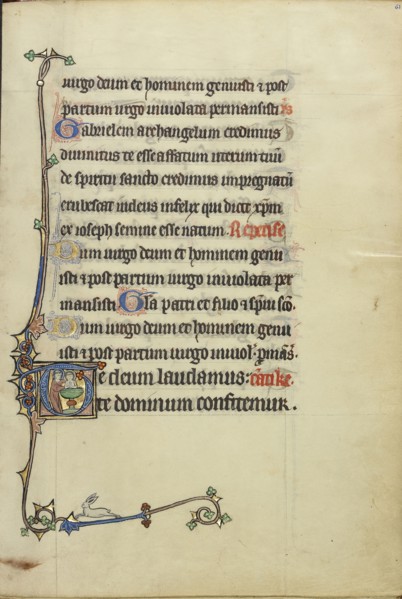 uirgo deum et hominem genuisti ⁊ post
partum uirgo inuiolata permansisti
Gabrielem archangelum credimus
diuinitus te esse affatum uterum tuū
de spiritu sancto credimus impregnatū
erubescat iudeus infelix qui dicit xp̄m
ex ioseph semine esse natum. Repetise
Dum uirgo deum et hominem genu
isti ⁊ post partum uirgo inuiolata per
mansisti Gl̄a patri et filio ⁊ sp̄ui sc̄o.
Dum uirgo deum et hominem genu
isti ⁊ post partum uirgo inuiol' p̄māṡ.
Te deum laudamus:
te dominum confitemur.